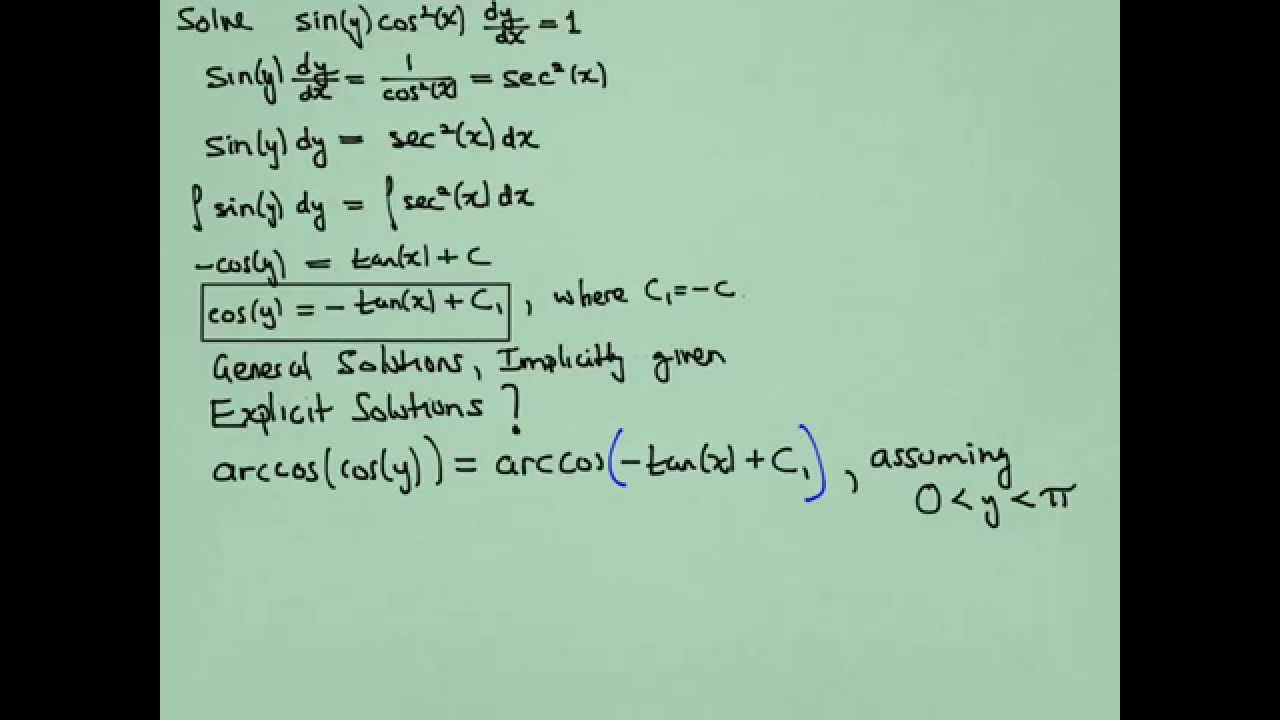 Solve sin(y)cos²(x) dy/dx = 1
sin(y) dy/dx = 1/cos²(x) = sec²(x)
sin(y) dy = sec²(x) dx
∫ sin(y) dy = ∫ sec²(x) dx
-cos(y) = tan(x) + C
cos(y) = - tan(x) + C₁ , where C₁ = -C
General Solutions, Implicitly given
Explicit Solutions ?
arccos(cos(y)) = arccos(-tan(x) + C₁) , assuming
0 < y < π